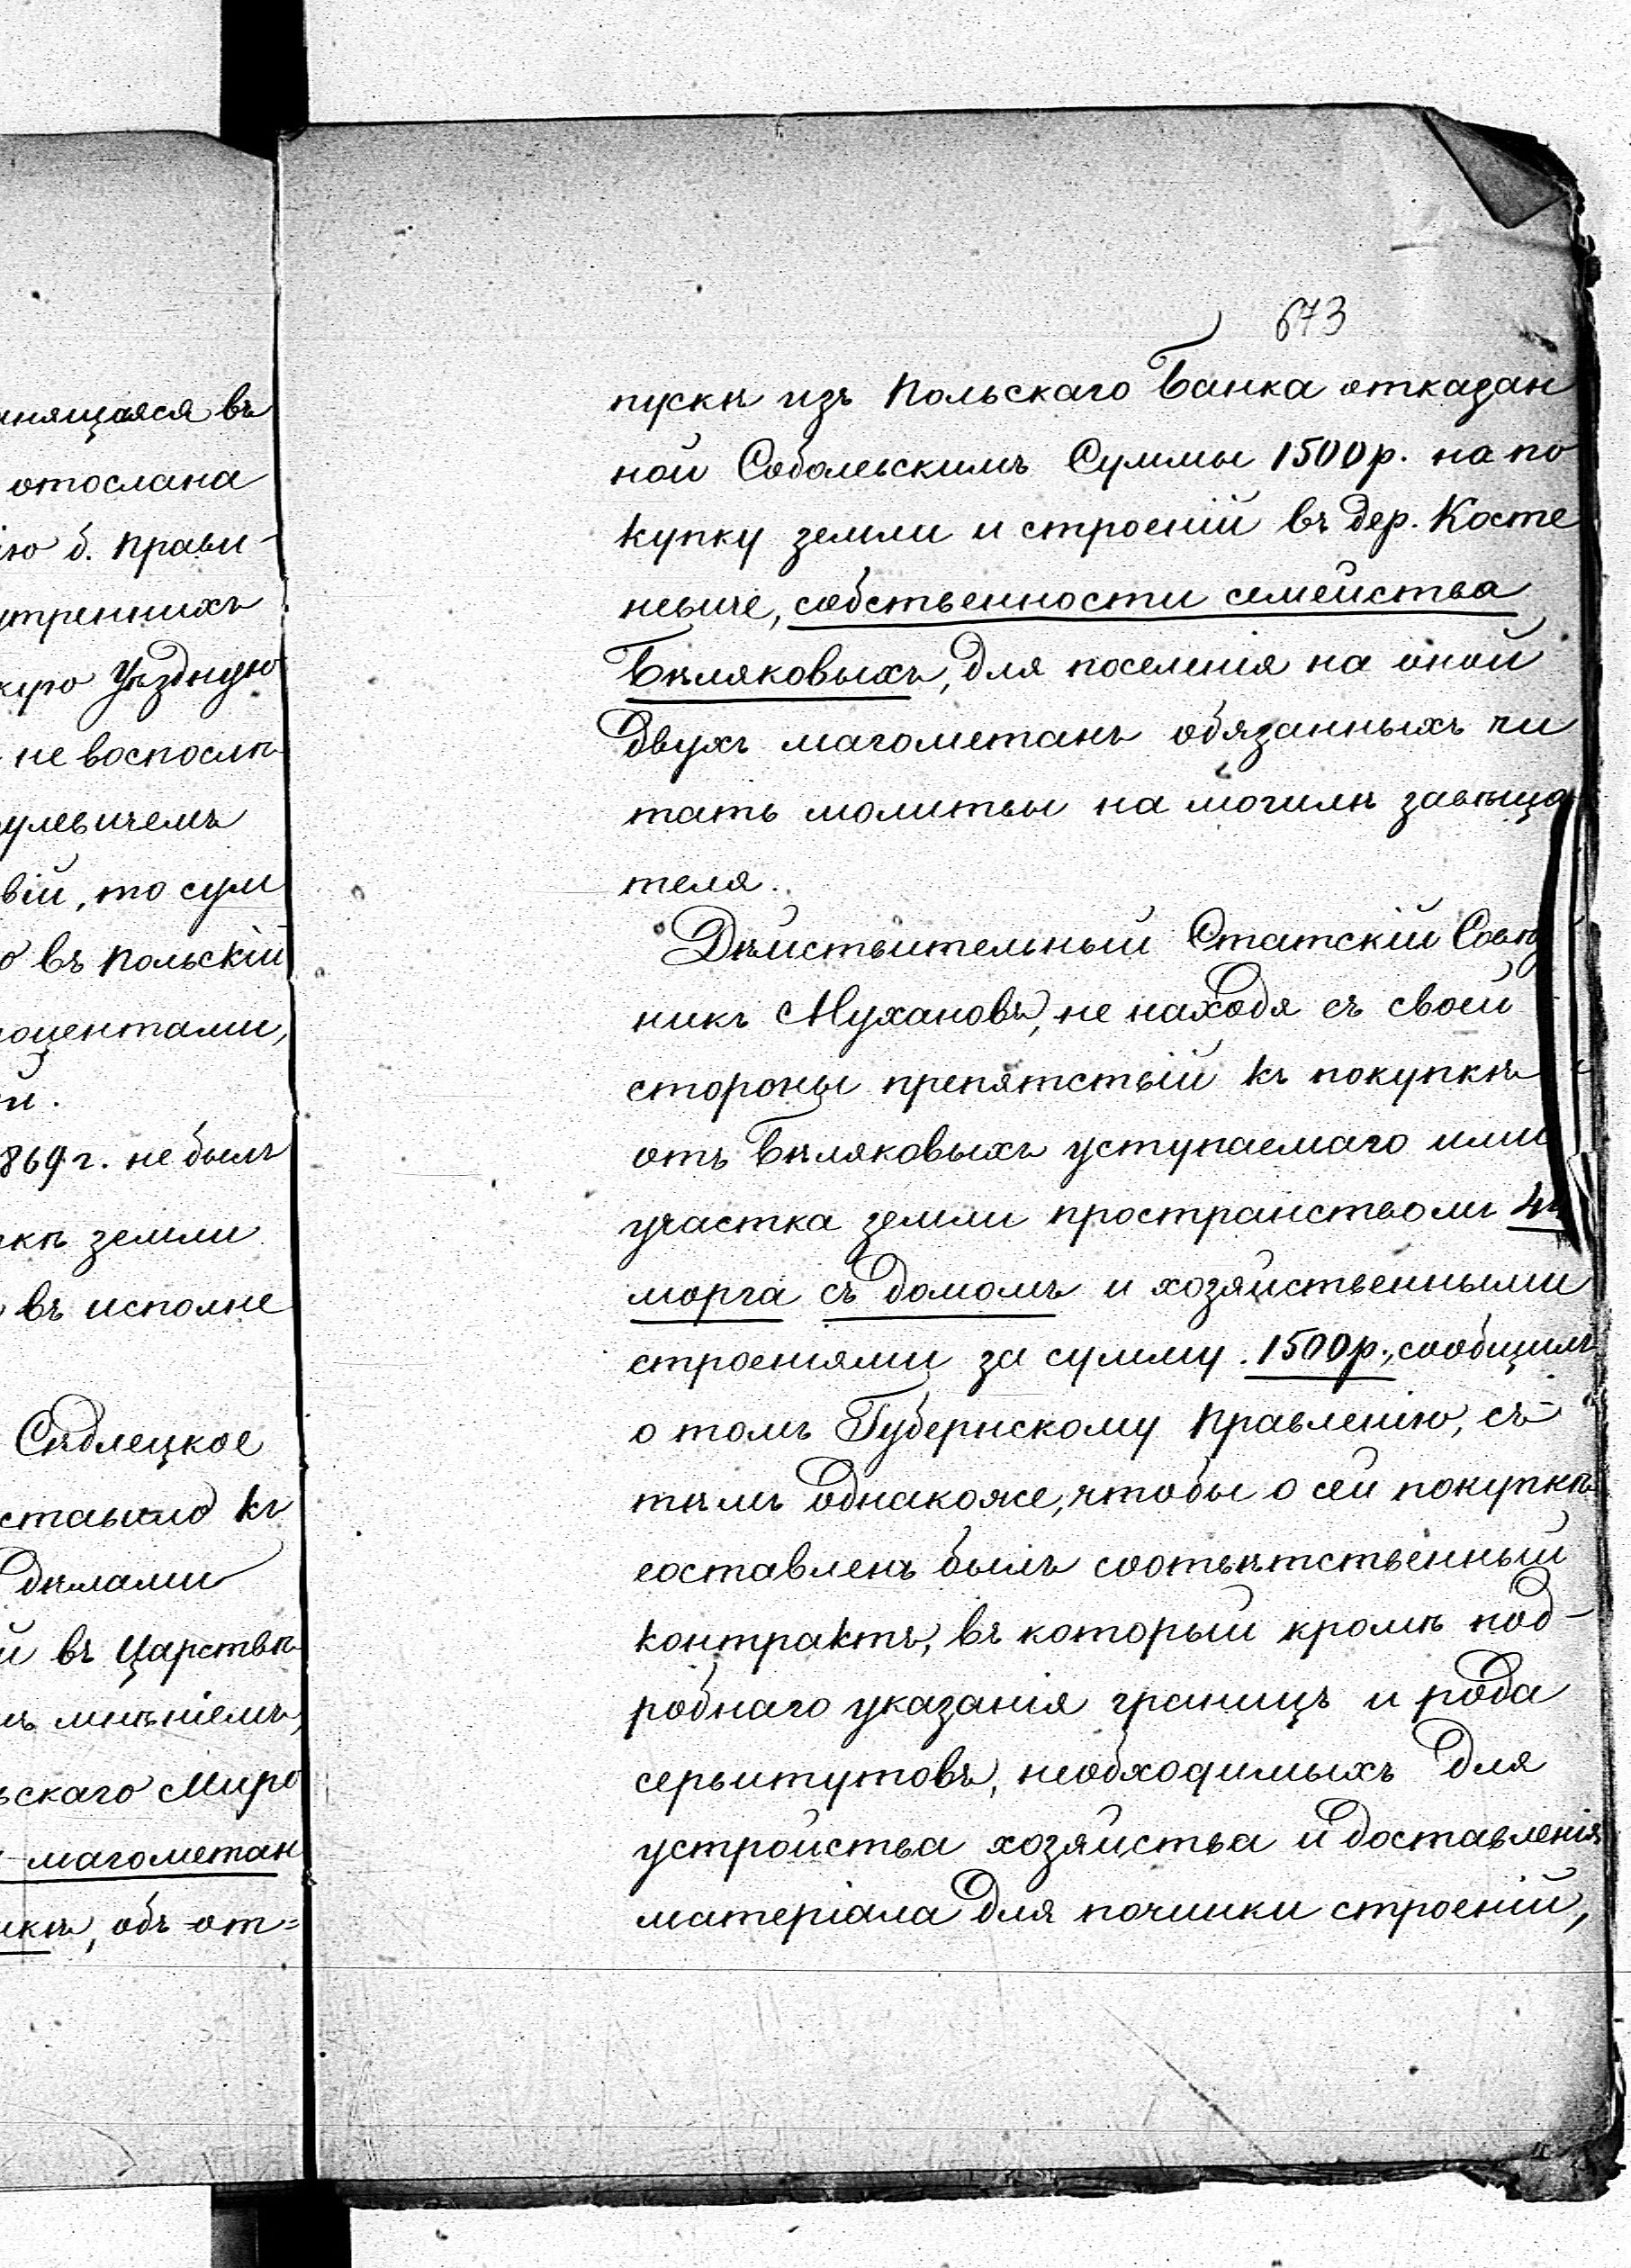 нящаяся въ
отослана
ію б. Прави-
утреннихъ
скую Уѣздную
не воспослѣ
улевичемъ
вій, то сум
о въ Польскій
роцентами,
й.
869 г. не былъ
пкѣ земли
въ исполне
Сѣдлецкое
ставило къ
дѣлами
й въ Царствѣ
мъ мнѣніемъ,
ьскаго Миро
магометан
икѣ, объ от=
673
пускѣ изъ Польскаго Банка отказан
ной Собалевскимъ Суммы 1500 р. на по
купку земли и строеній въ дер. Косте
невиче, собственности семейства
Бѣляковыхъ, для поселенія на оной
двухъ магометанъ обязанныхъ чи
тать молитвы на могилѣ завѣща
теля.
Дѣйствительный Статскій Совѣт
никъ Мухановъ, не находя съ своей
стороны препятствій къ покупкѣ
отъ Бѣляковыхъ уступаемаго ими
участка земли пространствомъ 44
морга съ домомъ и хозяйственными
строеніями за сумму 1500 р., сообщилъ
о томъ Губернскому Правленію, съ
тѣмъ однакоже, чтобы о сей покупкѣ
составленъ былъ соотвѣтственный
контрактъ, въ который кромѣ под-
робнаго указанія границъ и рода
сервитутовъ, необходимыхъ для
устройства хозяйства и доставленія
матеріала для починки строеній,